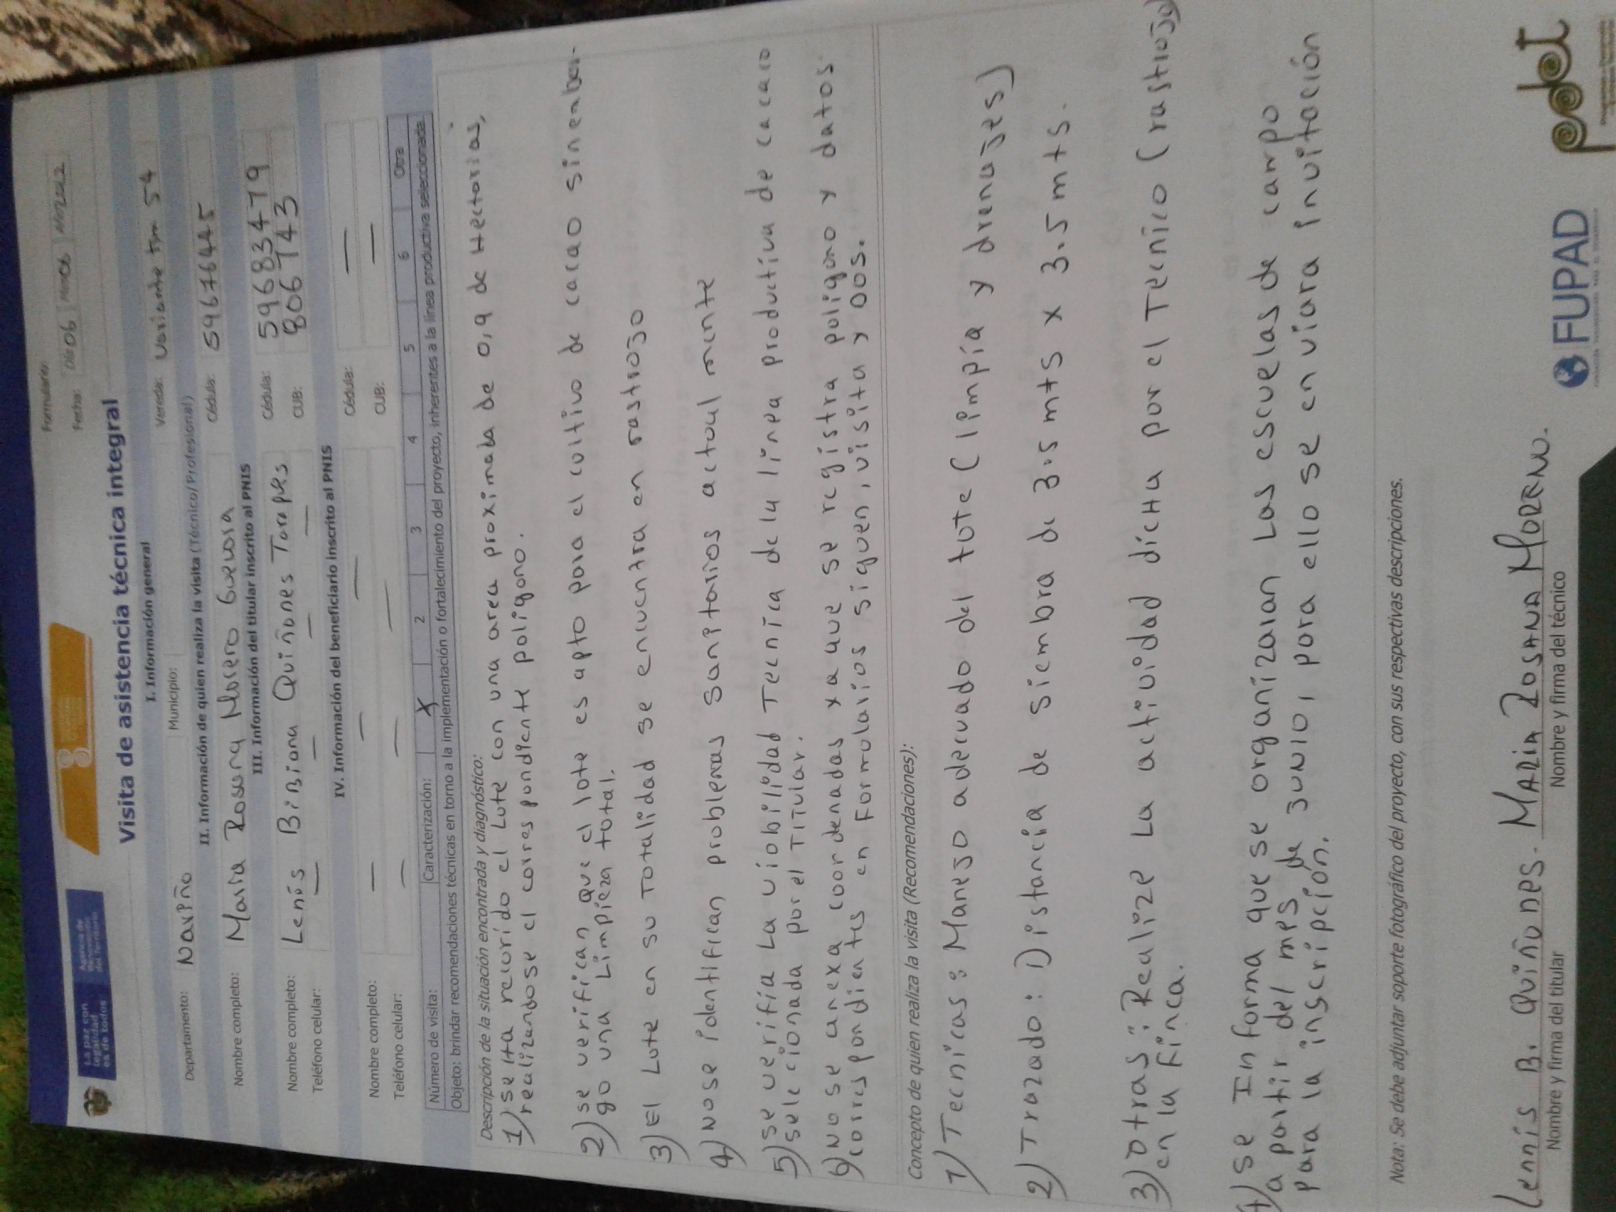 La paz con
legalidad
es de todos
Agencia de
Renovación
del Territorio
Formulario:
Fecha: Día 06 Mes 06 Año 2022
Visita de asistencia técnica integral
I. Información general
Departamento: Nariño Municipio: Vereda: Variante Tm 54
II. Información de quien realiza la visita (Técnico/Profesional)
Nombre completo: Maria Rosana Moreno Cédula: 59676445
III. Información del titular inscrito al PNIS
Nombre completo: Lenis Bibiana Quiñones Cédula: 59683479
Teléfono celular: — — — — CUB: 806743
IV. Información del beneficiario inscrito al PNIS
Nombre completo: — — — Cédula: —
Teléfono celular: — — — CUB: —
Número de visita: Caracterización: X 2 3 4 5 6 Otra
Objeto: brindar recomendaciones técnicas en torno a la implementación o fortalecimiento del proyecto, inherentes a la línea productiva seleccionada.
Descripción de la situación encontrada y diagnóstico:
1) se Ha recorido el Lote con una area proximada de 0,9 de Hectarias,
realizandose el correspondiente poligono.
2) se verifican que el lote es apto para el coltivo de cacao sinenbar-
go una Limpieza total.
3) El Lote en su Totalidad se encuentra en rastrojo
4) No se identifican problemas sanitarios actual mente
5) se verifia La viobilidad Tecnica de la linea productiva de cacao
selecionada por el Titular.
6) No se anexa coordenadas ya que se registra poligono y datos
correspondientes en Formolarios siguen, visita y 00S.
Concepto de quien realiza la visita (Recomendaciones):
1) Tecnicas: Manejo adecuado del lote (limpia y drenajes)
2) Trazado: Distancia de siembra de 3.5 mts x 3.5 mts.
3) Otras: Realize La actividad dicha por el Tecnico (rastrojo)
en la Finca.
4) se Informa que se organizaran Las escuelas de campo
a partir del mes de Junio, para ello se enviara invitación
para la inscripción.
Nota: Se debe adjuntar soporte fotográfico del proyecto, con sus respectivas descripciones.
Lennis B. Quiñones. MARIA ROSANA MORENO.
Nombre y firma del titular Nombre y firma del técnico
FUPAD
pdet